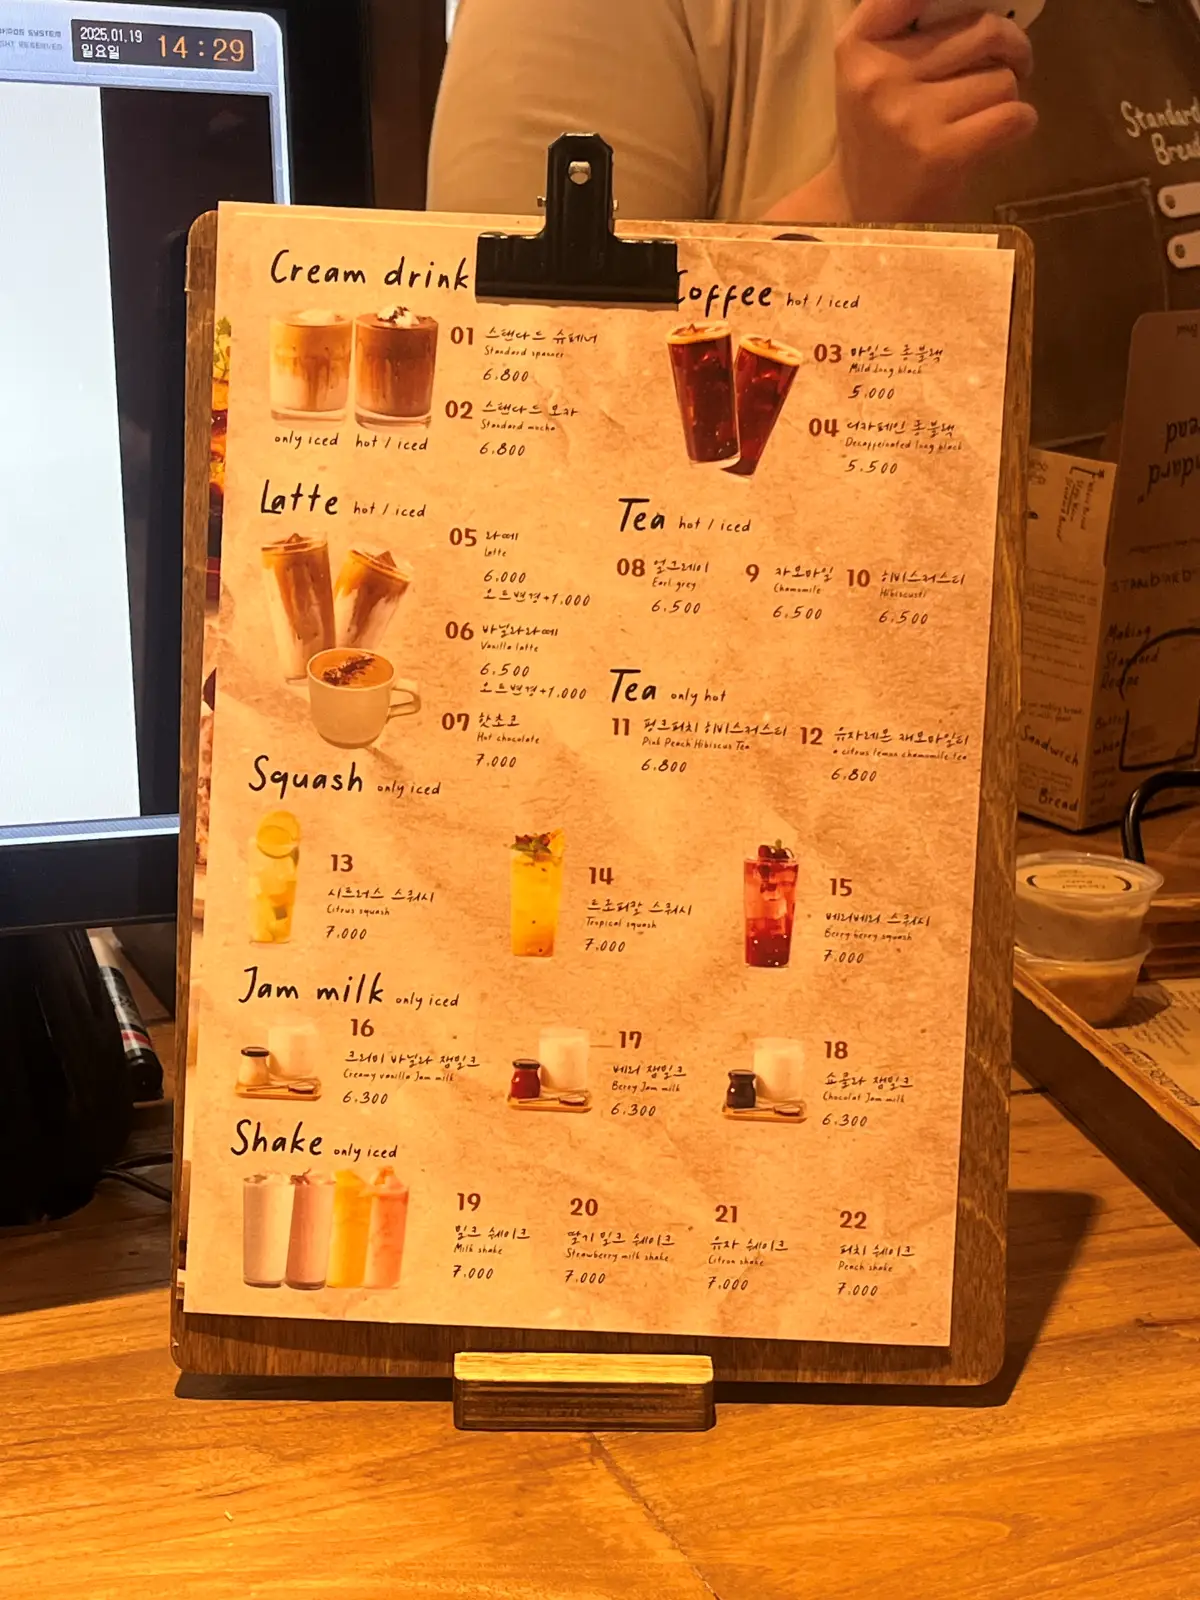 2025.01.19
일요일
14:29
Standard
Bread
Cream drink
only iced
hot / iced
01 스탠다드 슈페너
Standard spanner
6.800
02 스탠다드 모카
Standard mocha
6.800
Coffee hot / iced
03 마일드 롱블랙
Mild long black
5.000
04 디카페인 롱블랙
Decaffeinated long black
5.500
Latte hot / iced
05 라떼
Latte
6.000
오트변경+1.000
06 바닐라라떼
Vanilla latte
6.500
오트변경+1.000
07 핫초코
Hot chocolate
7.000
Tea hot / iced
08 얼그레이
Earl grey
6.500
9 캐모마일
Chamomile
6.500
10 히비스커스티
Hibiscusti
6.500
Tea only hot
11 핑크피치 히비스커스티
Pink Peach Hibiscus Tea
6.800
12 유자레몬 캐모마일티
a citrus lemon chamomile tea
6.800
Squash only iced
13
시트러스 스쿼시
Citrus squash
7.000
14
트로피칼 스쿼시
Tropical squash
7.000
15
베리베리 스쿼시
Berry berry squash
7.000
Jam milk only iced
16
크리미 바닐라 잼밀크
Creamy vanilla Jam milk
6.300
17
베리 잼밀크
Berry Jam milk
6.300
18
쇼콜라 잼밀크
Chocolat Jam milk
6.300
Shake only iced
19
밀크 쉐이크
Milk shake
7.000
20
딸기 밀크 쉐이크
Strawberry milk shake
7.000
21
유자 쉐이크
Citron shake
7.000
22
피치 쉐이크
Peach shake
7.000
Making
Standard
Recipe
Sandwich
Bread